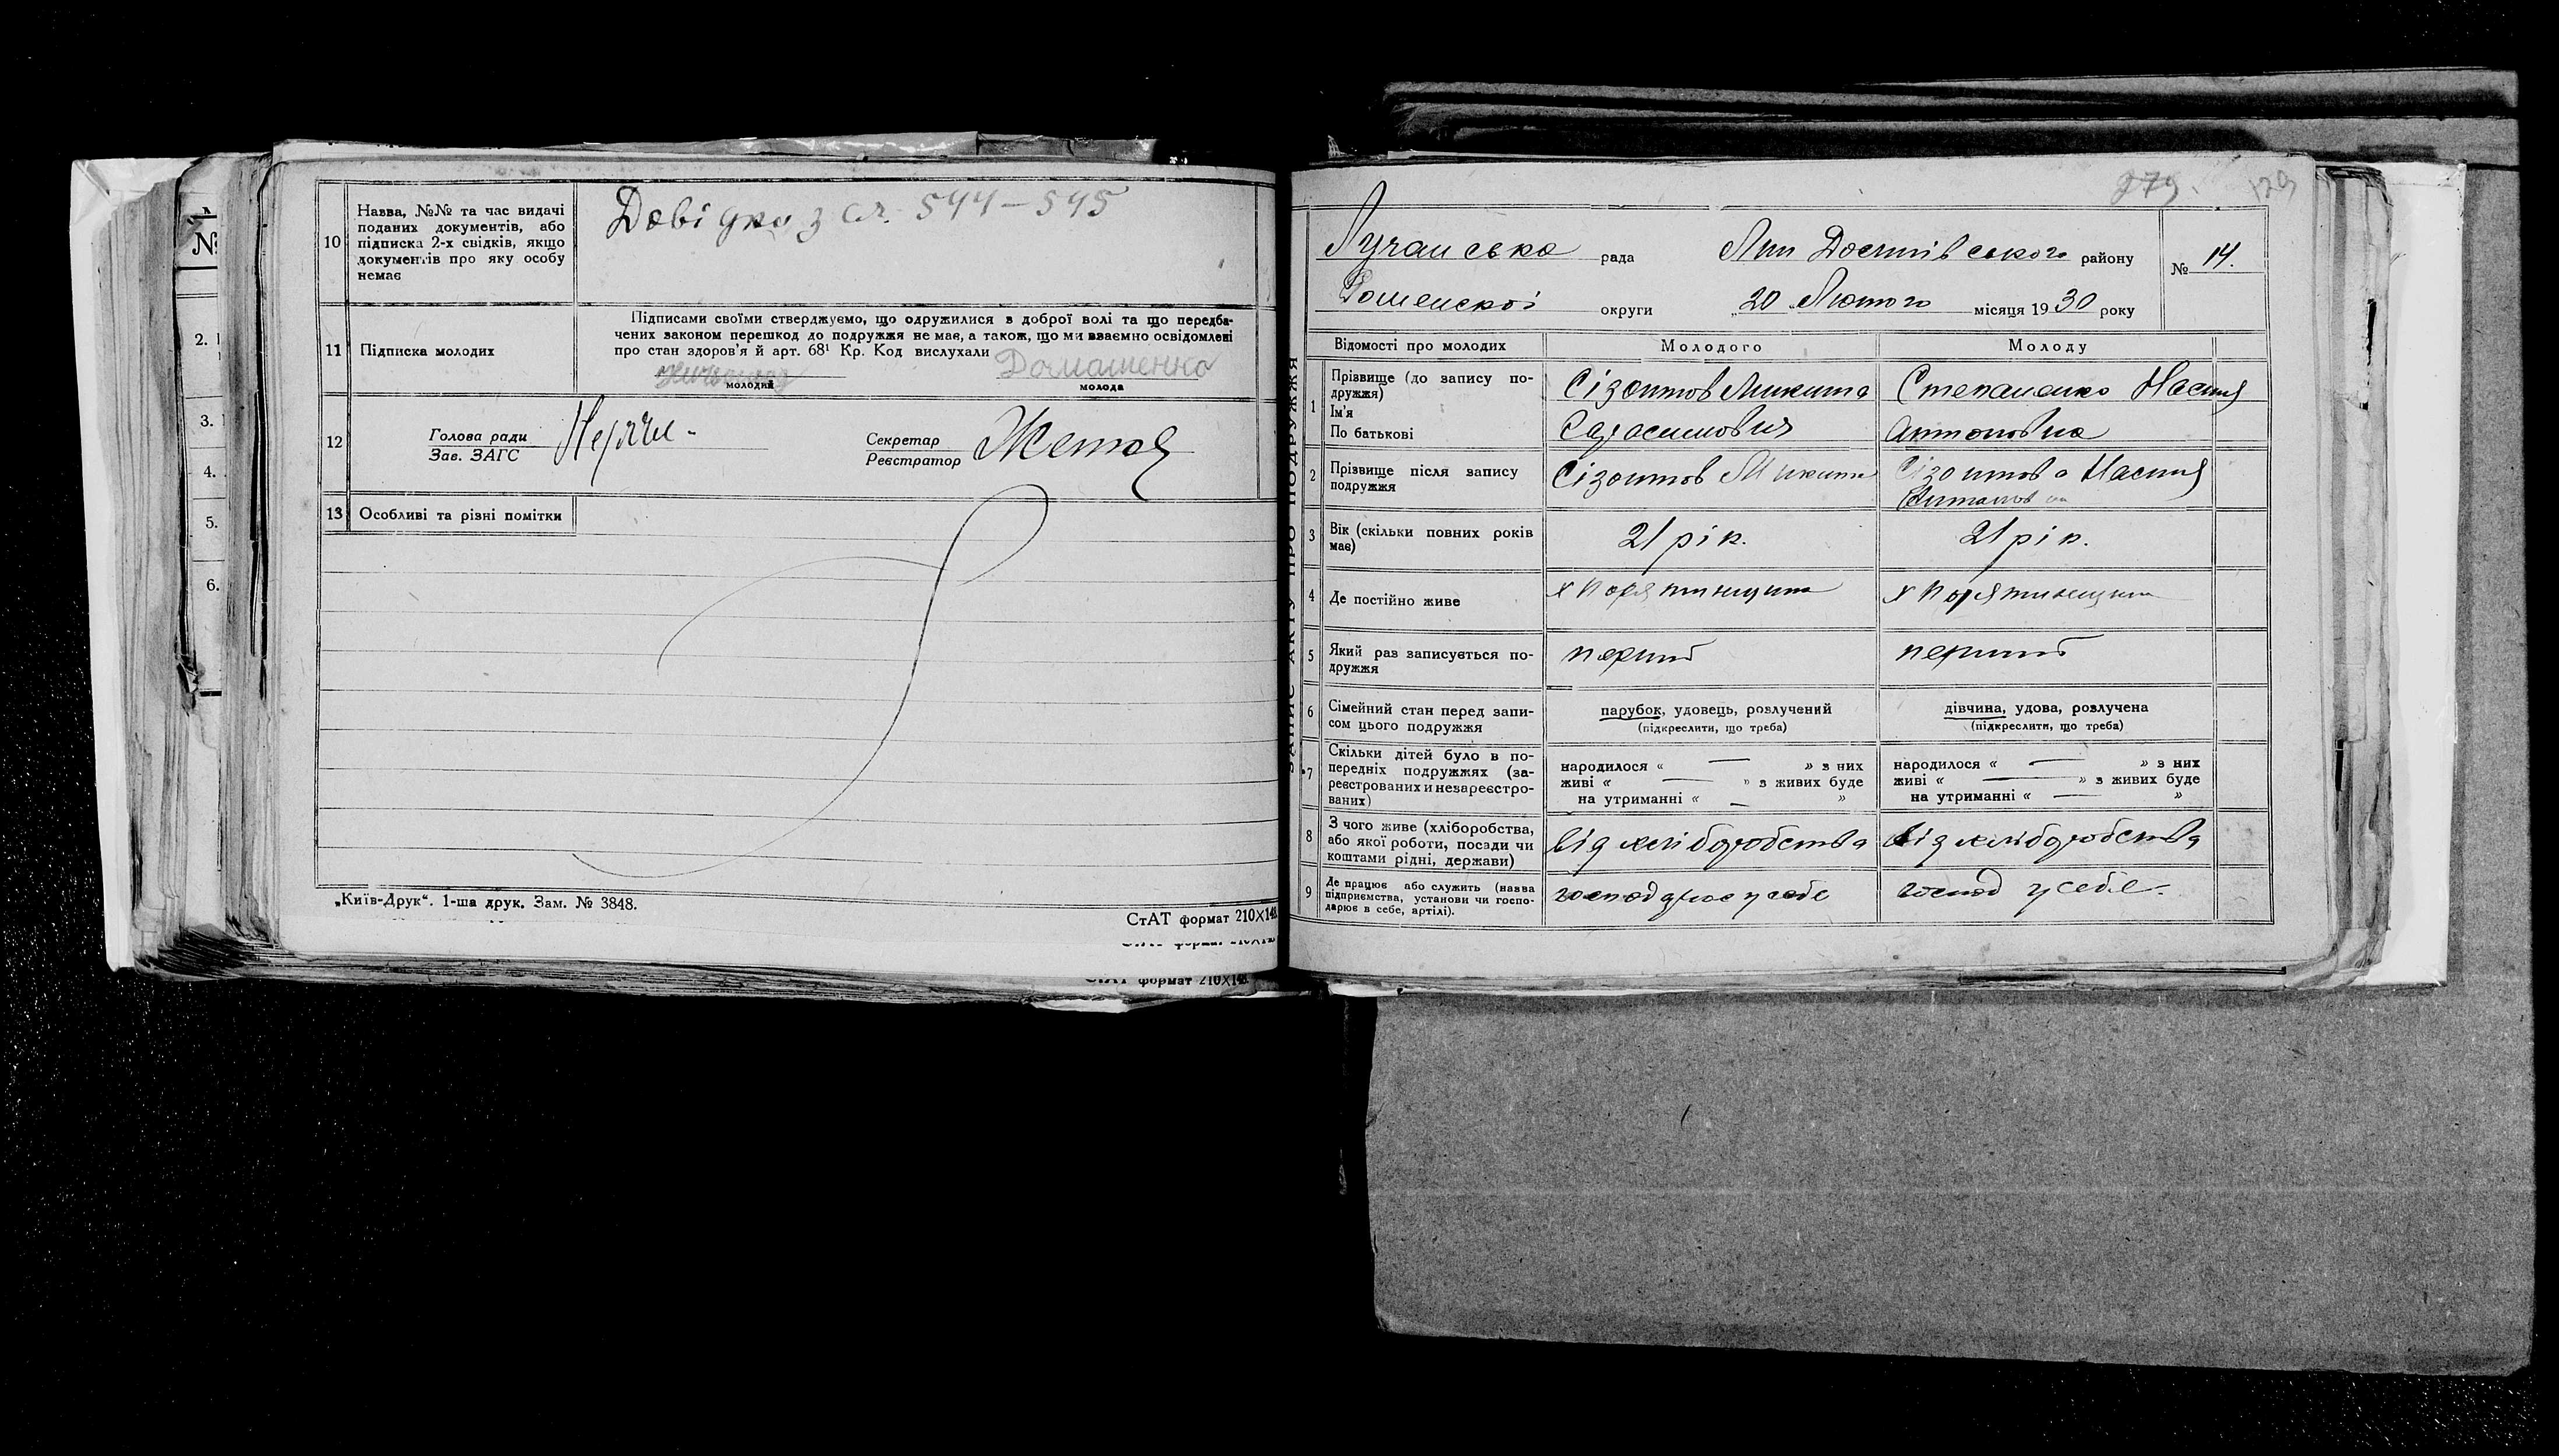 №
2.
3.
4.
5.
6.
10
Назва, №№ та час видачі
поданих документів, або
підписка 2-х свідків, якщо
документів про яку особу
немає
Довідка з Сл. 544-545
11
Підписка молодих
Підписами своїми стверджуємо, що одружилися з доброї волі та що передба-
чених законом перешкод до подружжя не має, а також, що ми взаємно освідомлені
про стан здоров'я й арт. 68¹ Кр. Код вислухали
Домашенко
молодий
молода
12
Голова ради
Зав. ЗАГС
Секретар
Реєстратор
13
Особливі та різні помітки
„Київ-Друк“. 1-ша друк. Зам. № 3848.
СтАТ формат 210X148
СтАТ формат 210X148
ЗАПИС АКТУ ПРО ПОДРУЖЖЯ
279
129
Лучанська рада району
№ 14.
Роменської округи „20 Лютого місяця 1930 року
Відомості про молодих
Молодого
Молоду
1
Прізвище (до запису по-
дружжя)
Ім'я
По батькові
Сізонтов Микита
Степаненко Настя
Антоновна
2
Прізвище після запису
подружжя
Сізонтов Микита
Сізонтова Настя
Антоновна
3
Вік (скільки повних років
має)
21 рік.
21 рік.
4
Де постійно живе
5
Який раз записується по-
дружжя
перший
перший
6
Сімейний стан перед запи-
сом цього подружжя
парубок, удовець, розлучений
(підкреслити, що треба)
дівчина, удова, розлучена
(підкреслити, що треба)
7
Скільки дітей було в по-
передніх подружжях (за-
реєстрованих и незареєстро-
ваних)
народилося « — » з них
живі « — » з живих буде
на утриманні « — »
народилося « — » з них
живі « — » з живих буде
на утриманні « — »
8
З чого живе (хліборобства,
або якої роботи, посади чи
коштами рідні, держави)
від хліборобства
від хліборобства
9
Де працює або служить (назва
підприємства, установи чи госпо-
дарює в себе, артілі).
господарює у себе
господ у себе.